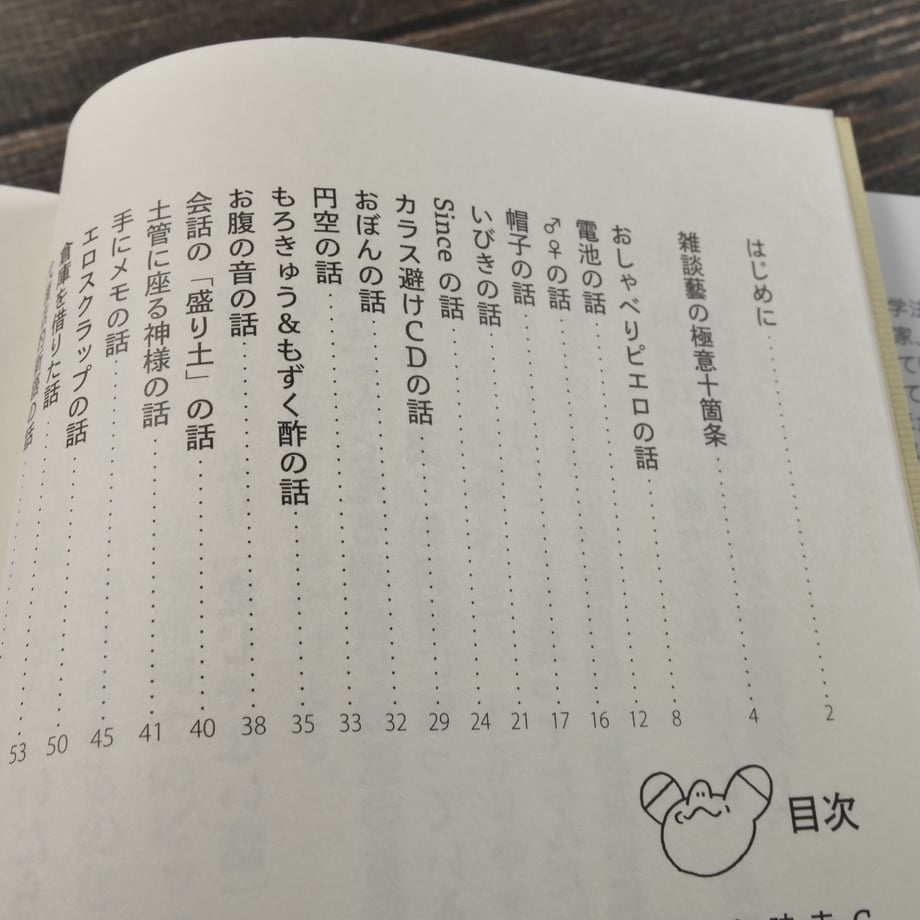 目次
はじめに 2
雑談藝の極意十箇条 4
おしゃべりピエロの話 8
電池の話 12
♂♀の話 16
帽子の話 17
いびきの話 21
Since の話 24
カラス避けCDの話 29
おぼんの話 32
円空の話 33
もろきゅう&もずく酢の話 35
お腹の音の話 38
会話の「盛り土」の話 40
土管に座る神様の話 41
手にメモの話 45
エロスクラップの話 50
倉庫を借りた話 53